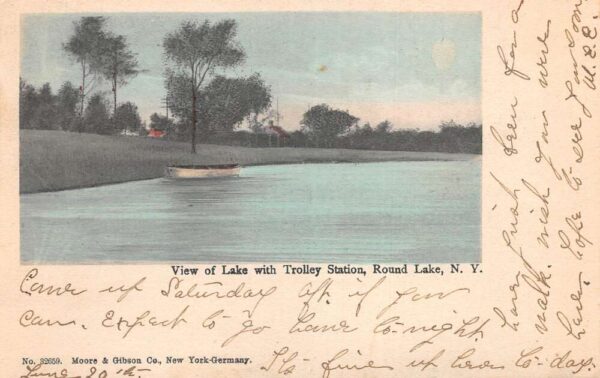 View of Lake with Trolley Station, Round Lake, N. Y.
Come up Saturday aft. if you
can. Expect to go home to-night
No. 32659. Moore & Gibson Co., New York-Germany.
It's fine up here to-day.
June 20th
have just been for a
walk. wish you were
here. hope to see you soon
M.E.E.